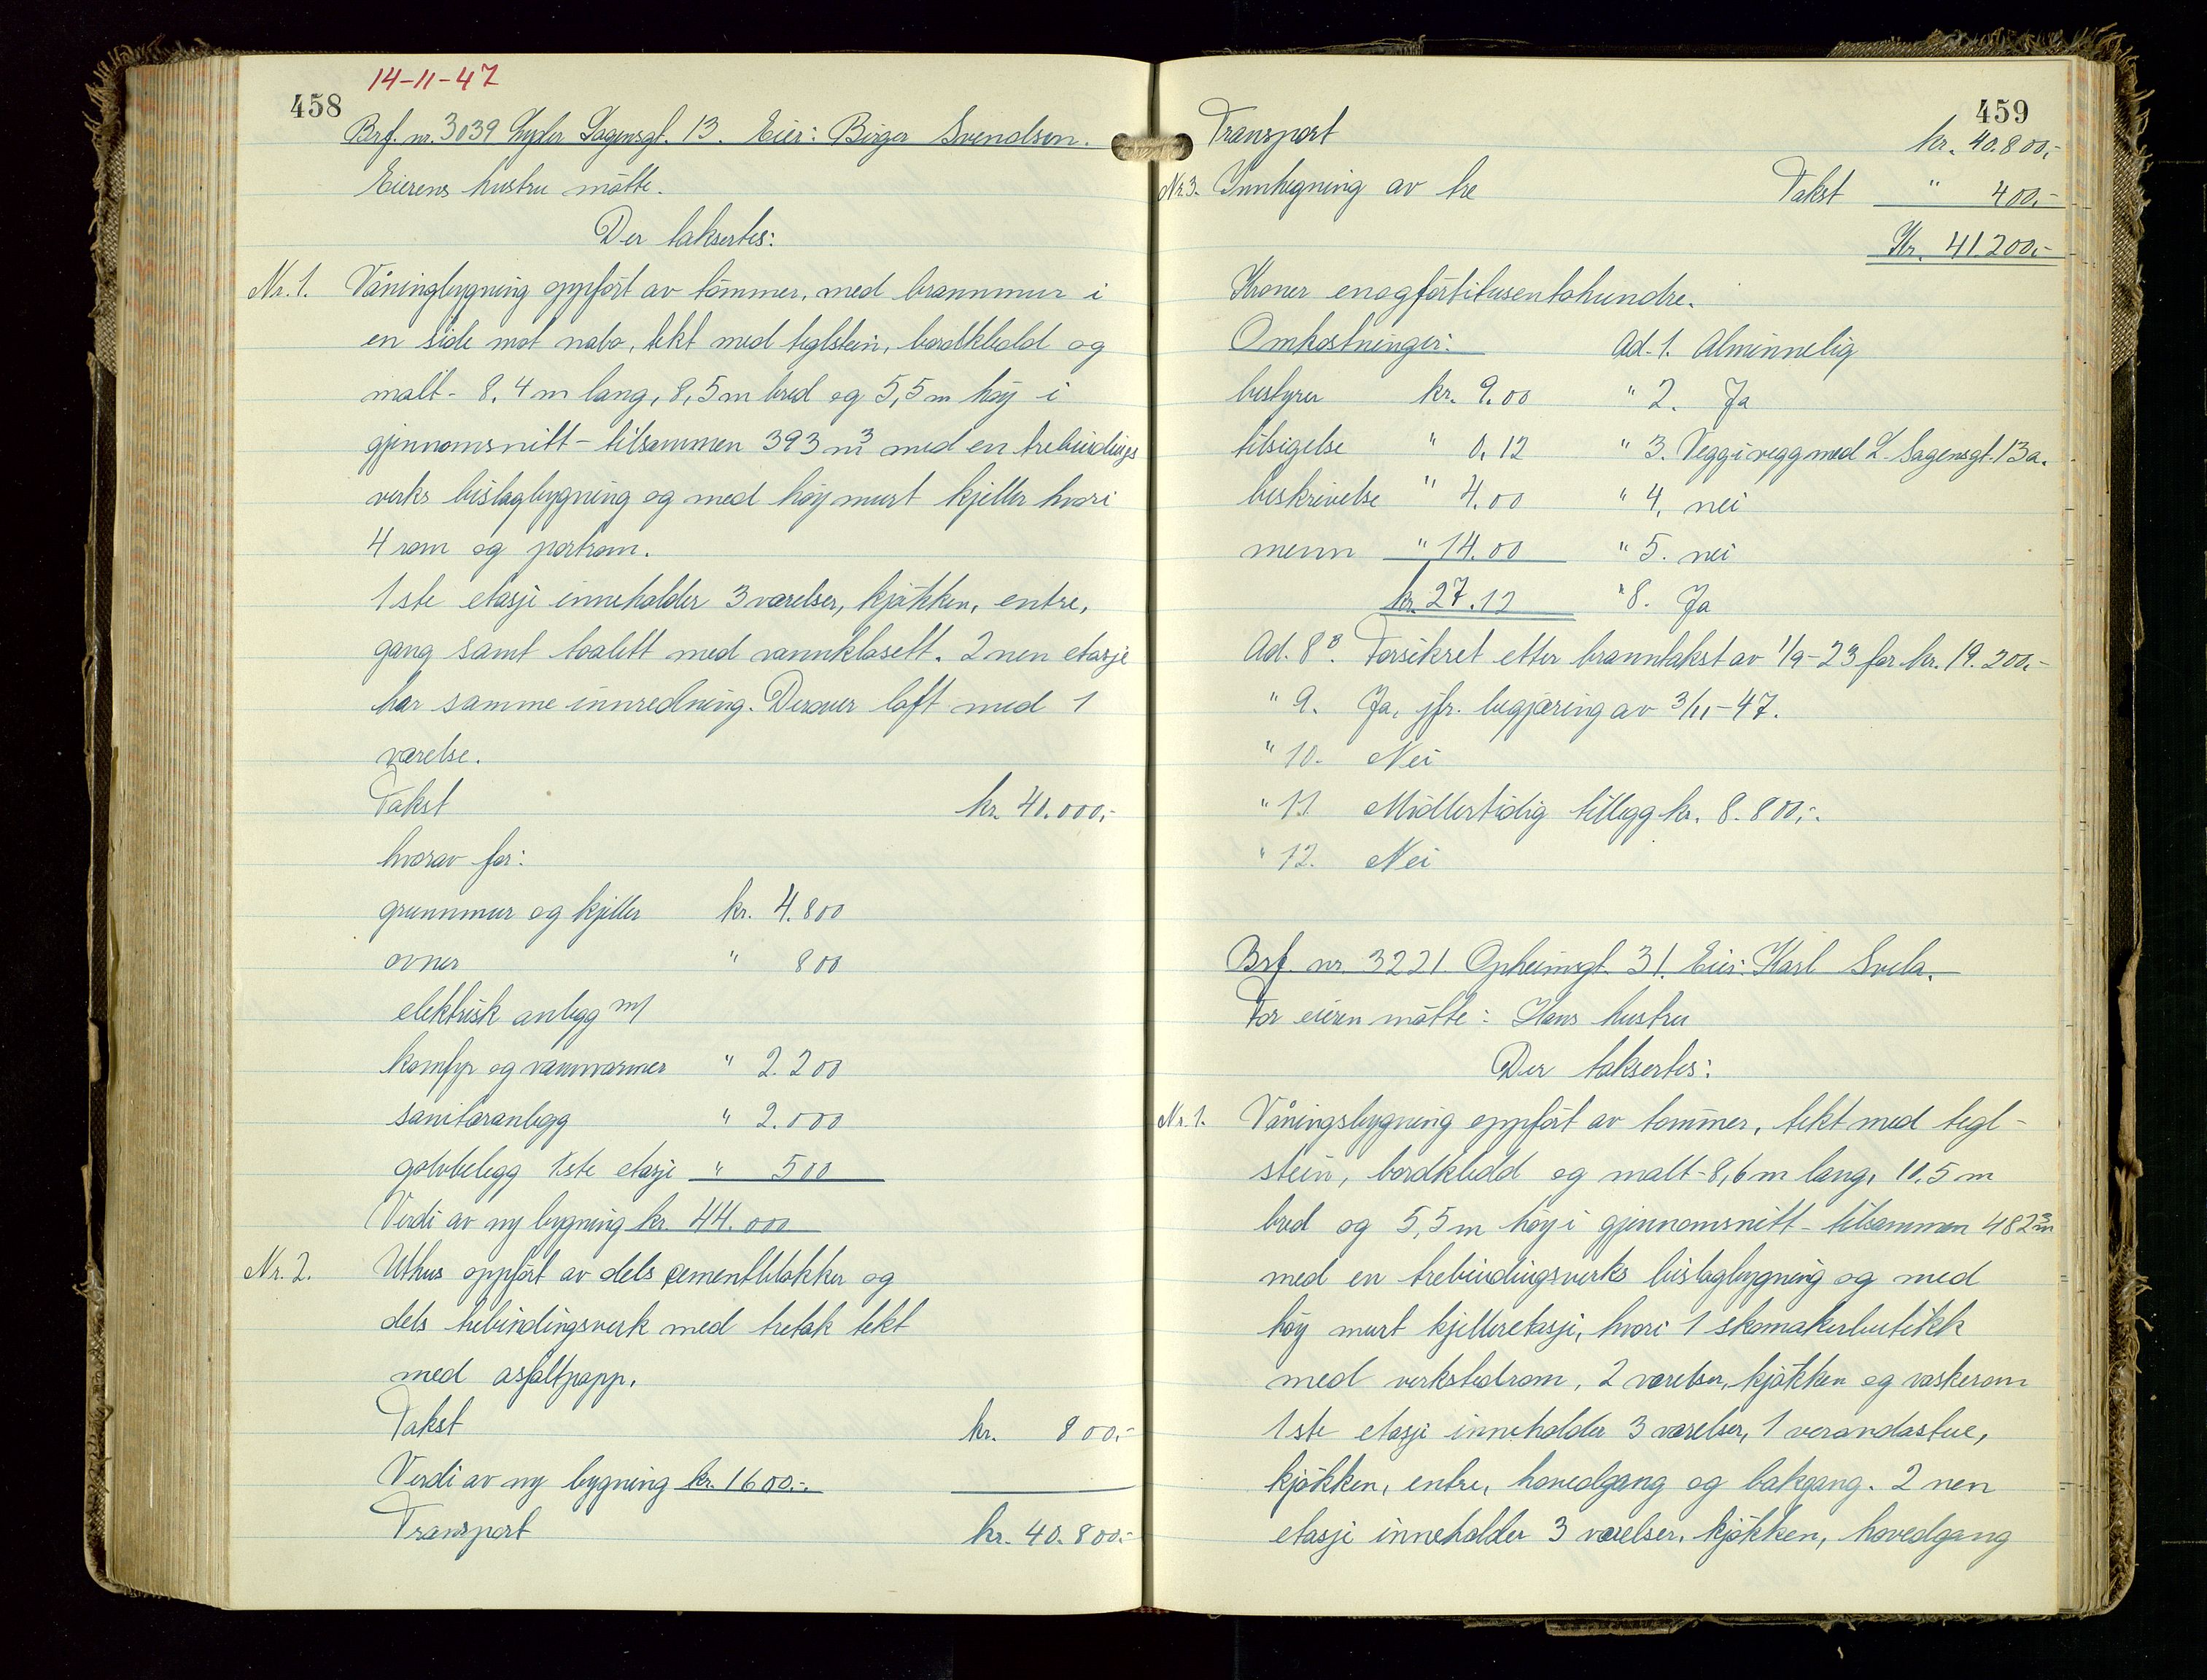 14-11-47
458
Brf. nr. 3039 Lyder Sagensgt. 13. Eier: Birger Svendsen.
Eierens hustru møtte.
Der taksertes:
Nr. 1. Våningbygning oppført av tømmer, med brannmur i
en side mot nabo, tekt med teglstein, bordkledd og
malt - 8,4 m lang, 8,5 m bred og 5,5 m høy i
gjennomsnitt - tilsammen 393 m³ med en trebindings
verks bislagbygning og med høy murt kjeller hvori
4 rom og portrom.
1ste etasje inneholder 3 værelser, kjøkken, entre,
gang samt toalett med vannklosett. 2nen etasje
har samme innredning. Derover loft med 1
værelse.
Takst kr. 40.000,-
hvorav for:
grunnmur og kjeller kr. 4.800
ovner " 800
elektrisk anlegg m/
komfyr og vannvarmer " 2.200
sanitæranlegg " 2.000
golvbelegg 1ste etasje " 500
Verdi av ny bygning kr. 44.000
Nr. 2. Uthus oppført av dels cementblokker og
dels trebindingsverk med tretak tekt
med asfaltpapp.
Takst kr. 800,-
Verdi av ny bygning kr. 1600.-
Transport kr. 40.800,-
459
Transport kr. 40.800,-
Nr. 3. Innhegning av tre Takst " 400,-
Kr. 41.200,-
Kroner enogførtitusentohundre.
Omkostninger: Ad. 1. Alminnelig
bestyrer kr. 9.00 " 2. Ja
tilsigelse " 0.12 " 3. Vegg i vegg med L. Sagensgt. 13a.
beskrivelse " 4.00 " 4. nei
menn " 14.00 " 5. nei
kr. 27.12 " 8. Ja
Ad. 8º. Forsikret etter branntakst av 1/9-23 for kr. 19.200,-
" 9. Ja, jfr. begjæring av 3/11-47.
" 10. Nei
" 11 Midlertidig tillegg kr. 8.800,-.
" 12. Nei
Brf. nr 3221 Opheimsgt. 31. Eier: Karl Svela.
For eieren møtte: Hans hustru
Der taksertes:
Nr. 1. Våningsbygning oppført av tømmer, tekt med tegl-
stein, bordkledd og malt - 8,6 m lang, 10,5 m
bred og 5,5 m høy i gjennomsnitt - tilsammen 482 m³
med en trebindingsverks bislagbygning og med
høy murt kjelleretasje, hvori 1 skomakerbutikk
med verkstedrom, 2 værelser, kjøkken og vaskerom
1ste etasje inneholder 3 værelser, 1 verandastue,
kjøkken, entre, hovedgang og bakgang. 2nen
etasje inneholder 3 værelser, kjøkken, hovedgang